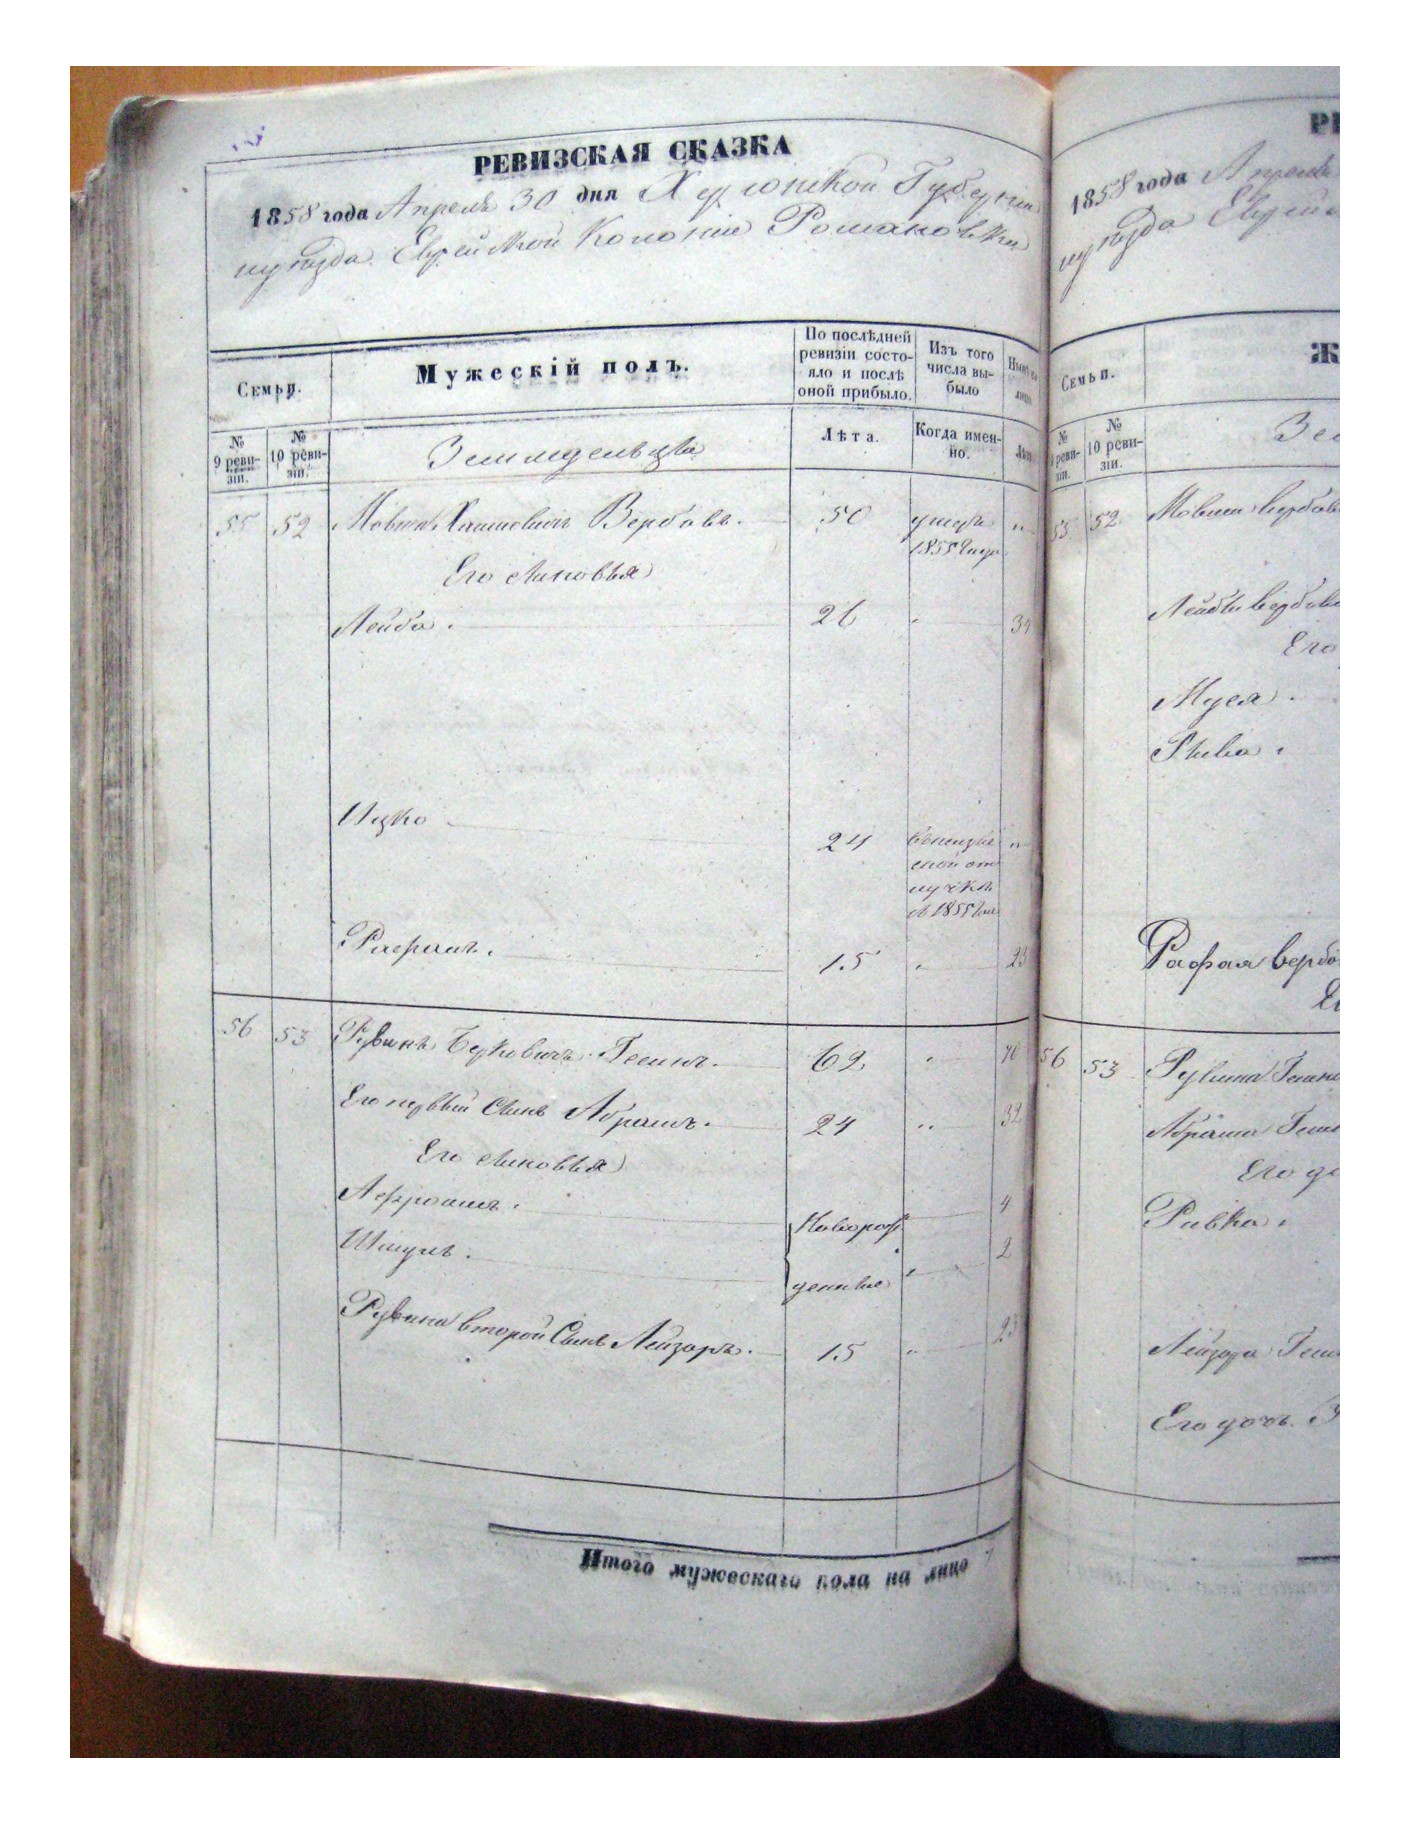 РЕВИЗСКАЯ СКАЗКА
1858 года Апреля 30 дня Херсонской Губерніи
уѣзда Еврейской Колоніи Романовки
Семьи.
Мужескій полъ.
По послѣдней ревизіи состояло и послѣ оной прибыло.
Изъ того числа выбыло
№ 9 ревизіи.
№ 10 ревизіи.
Земледельцы
Лѣта.
Когда именно.
Лѣта
55 52 Мовша Хаимовичъ Вербовъ. 50 умеръ 1855 года "
Его сыновья
Лейба. 26 "
Ицко 24 отлучкѣ с 1855 года "
Рафаилъ. 15 " 23
56 53 Рувинъ Ицковичъ Гесинъ. 62 " 70
Его первый Сынъ Абрамъ. 24 " 32
Его сыновья
Афроимъ. Новорож 4
Шмуль. денные " 2
Рувина второй Сынъ Лейзоръ. 15 " 23
Итого мужескаго пола на лицо 7
РЕ
1858 года Апреля
уѣзда Еврей
Семьи.
Ж
№ 9 ревизіи.
№ 10 ревизіи.
Зем
55 52 Мовши Вербов
Лейбы Вербов
Его
Муся.
Рива.
Рафаила Вербо
Е
56 53 Рувина Гесин
Абрама Геси
Его до
Ривка.
Лейзора Геси
Его дочь. Э